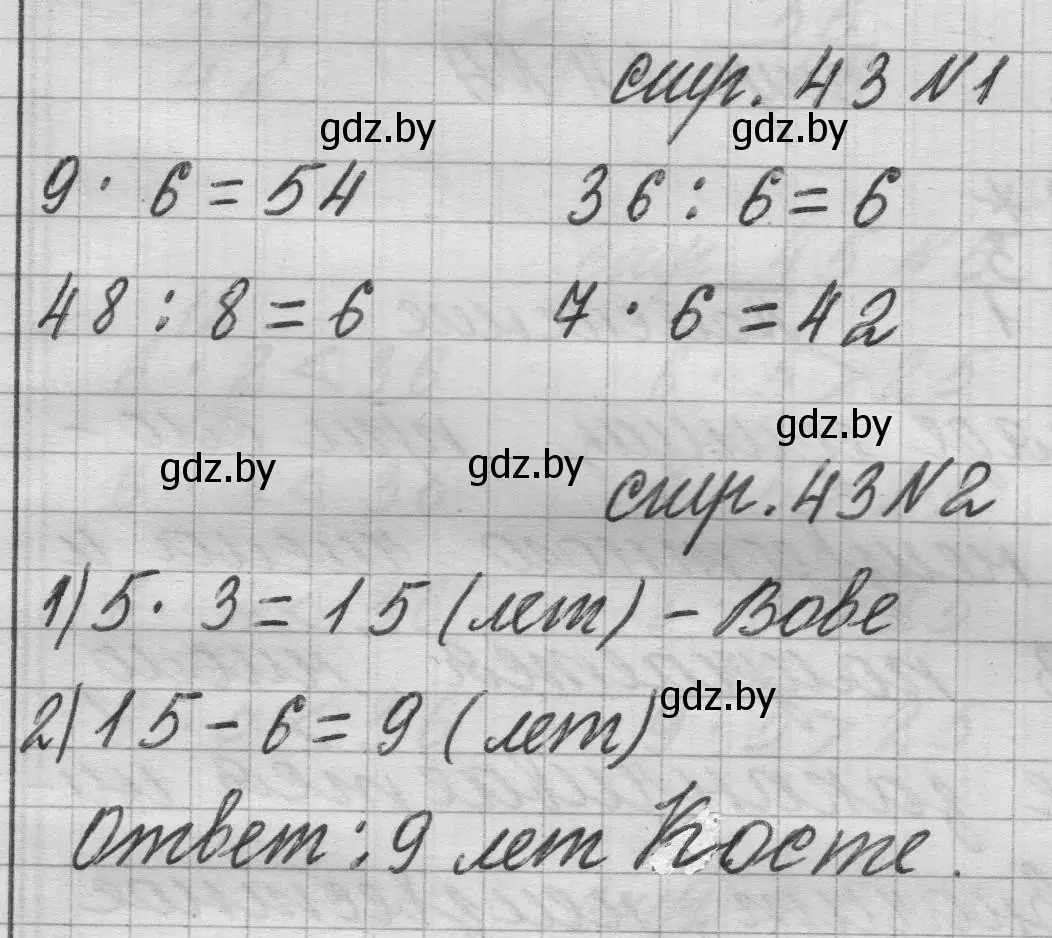 стр. 43 №1
gdz.by gdz.by
9 · 6 = 54 36 : 6 = 6
48 : 8 = 6 7 · 6 = 42
gdz.by
gdz.by gdz.by
стр. 43 №2
1) 5 · 3 = 15 (лет) - Вове
2) 15 - 6 = 9 (лет)
gdz.by
Ответ: 9 лет Косте.